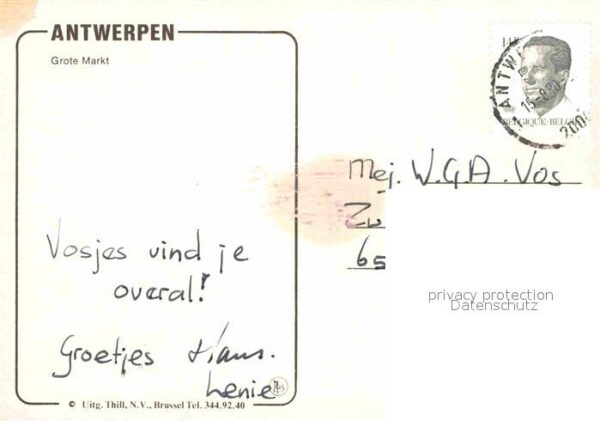 ANTWERPEN
Grote Markt
14F
ANTW
15-8
BELGIQUE-BELG
2000
Mej. W.G.A. Vos
Zu
65
Vosjes vind je
overal!
Groetjes Hans.
Lenie
privacy protection
Datenschutz
© Uitg. Thill, N.V., Brussel Tel. 344.92.40